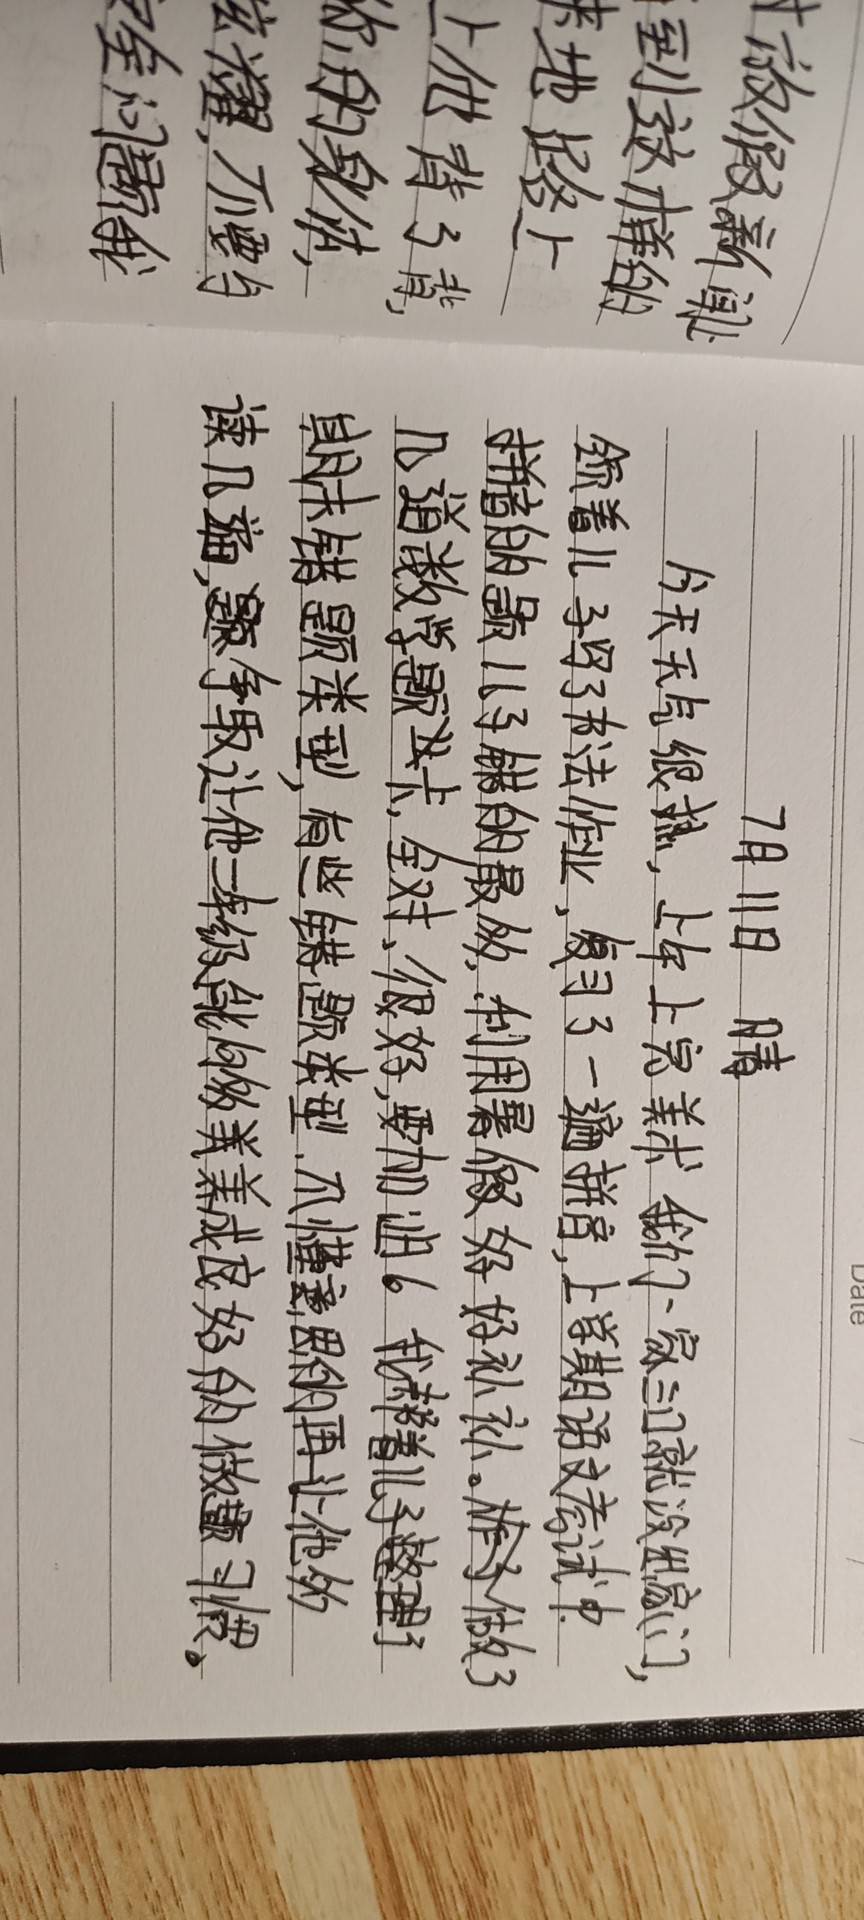 放假新闻
到这样的
地路上
上他背了背,
你的身体,
炫耀,不要与
安全问题我
Date
7月11日 晴
今天天气很热,上午上完美术我们一家三口就没出家门,
领着儿子写了书法作业,复习了一遍拼音,上学期语文考试中
拼音的题儿子错的最多,利用暑假好好补补。做了
几道数学题类卡,全对,很好,要加油。我帮着儿子整理了
期末错题类型,有些错题类型,不懂意思的再让他多
读几遍,题争取让他二年级能够养成良好的做题习惯。